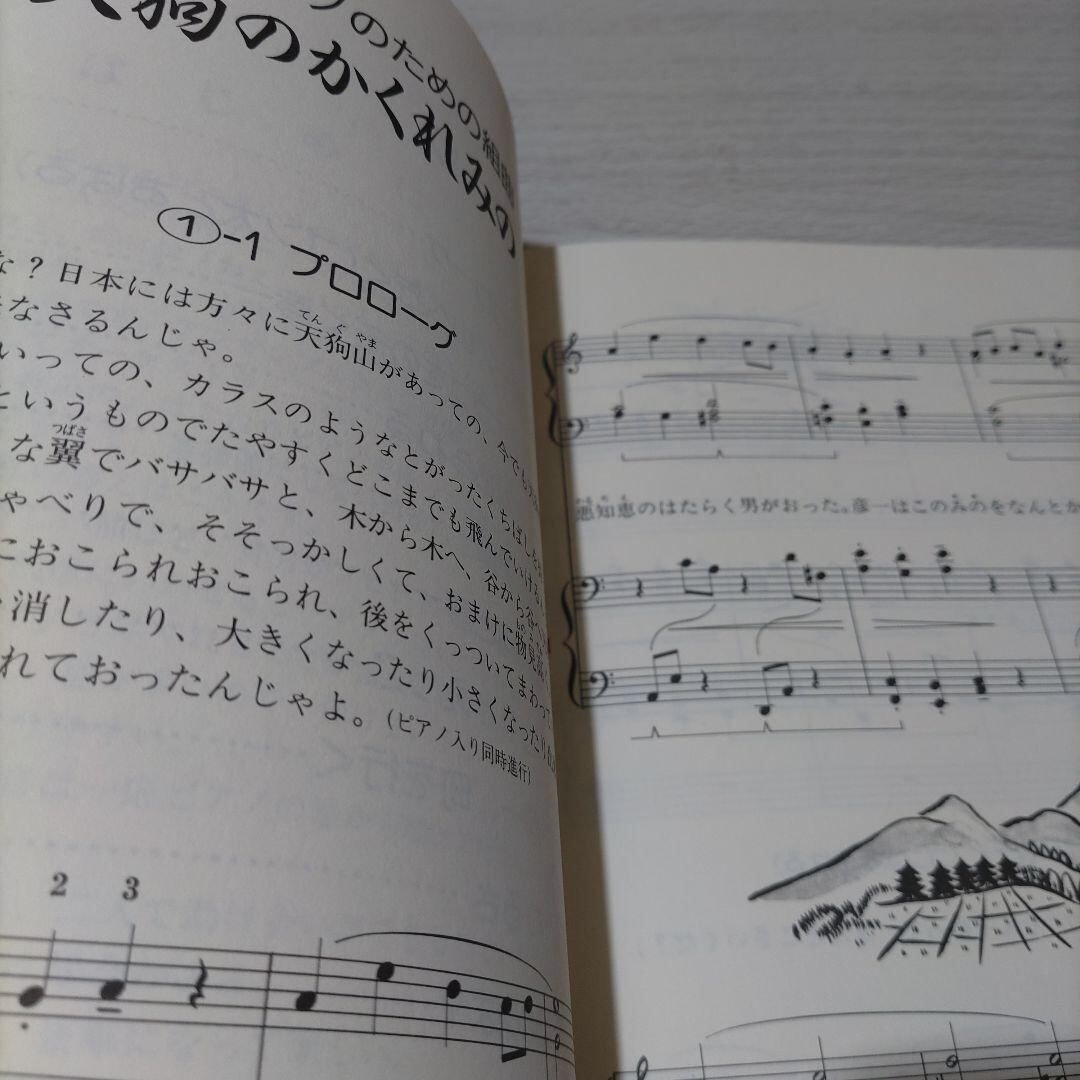 のための組曲
天狗のかくれみの
①-1 プロローグ
な？日本には方々に天狗山があっての、今でも
なさるんじゃ。
いっての、カラスのようなとがったくちばし
というものでたやすくどこまでも飛んでいける
な翼でバサバサと、木から木へ、谷から谷へ
ゃべりで、そそっかしくて、おまけに物見
におこられおこられ、後をくっついてまわって
消したり、大きくなったり小さくなったり
れておったんじゃよ。(ピアノ入り同時進行)
2 3
知恵のはたらく男がおった。彦一はこのみのをなんとか